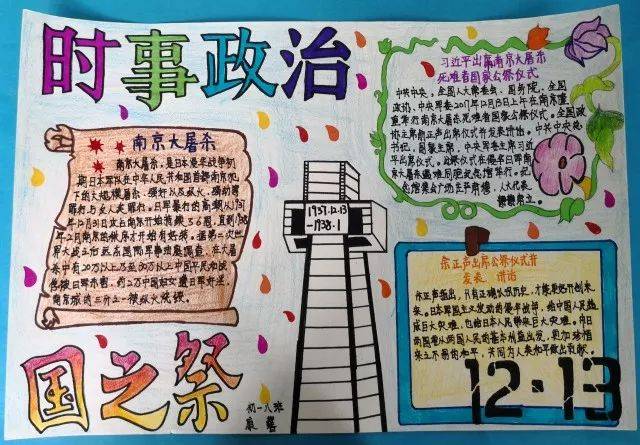 时事政治
南京大屠杀
南京大屠杀,是日本侵华战争初
期日本军队在中华人民共和国首都南京犯
下的大规模屠杀、强奸以及纵火、抢劫等
罪行与反人类罪行。日军暴行的高潮从1937
年12月13日攻占南京开始持续了6周,直到1938
年2月南京的秩序才开始有好转。据第二次世
界大战后远东国际军事法庭
杀中有20万以上乃至30万以上中国平民和战
俘被日军杀害,约2万中国妇女遭日军奸淫,
南京城的三分之一被纵火烧毁。
国之祭
1937.12.13
-1938.1
初一八班
习近平出席南京大屠杀
死难者国家公祭仪式
中共中央、全国人大常委会、国务院、全国
政协、中央军委2017年12月13日上午在南京隆
重举行南京大屠杀死难者国家公祭仪式。全国政
协主席俞正声出席仪式并发表讲话。中共中央总
书记、国家主席、中央军委主席习近
平出席仪式。公祭仪式在侵华日军南京
大屠杀遇难同胞纪念馆举行。纪
念馆集会广场庄严肃穆,人大代表
肃立。
俞正声出席公祭仪式并
发表 讲话
俞正声指出,只有正确认识历史,才能更好开创未
来。日本军国主义发动的侵华战争,给中国人民造
成巨大灾难,也给日本人民带来巨大灾难。中日
两国要从两国人民的基本利益出发,更加珍惜
来之不易的和平,共同为人类和平做出贡献。
12·13